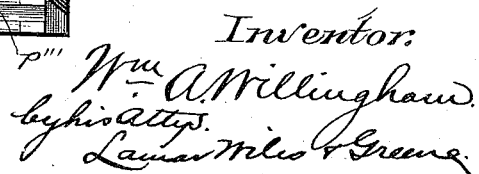 Inventor:
p'''
Wm A. Willingham.
by his Attys.
Lamar Wiles & Greene.